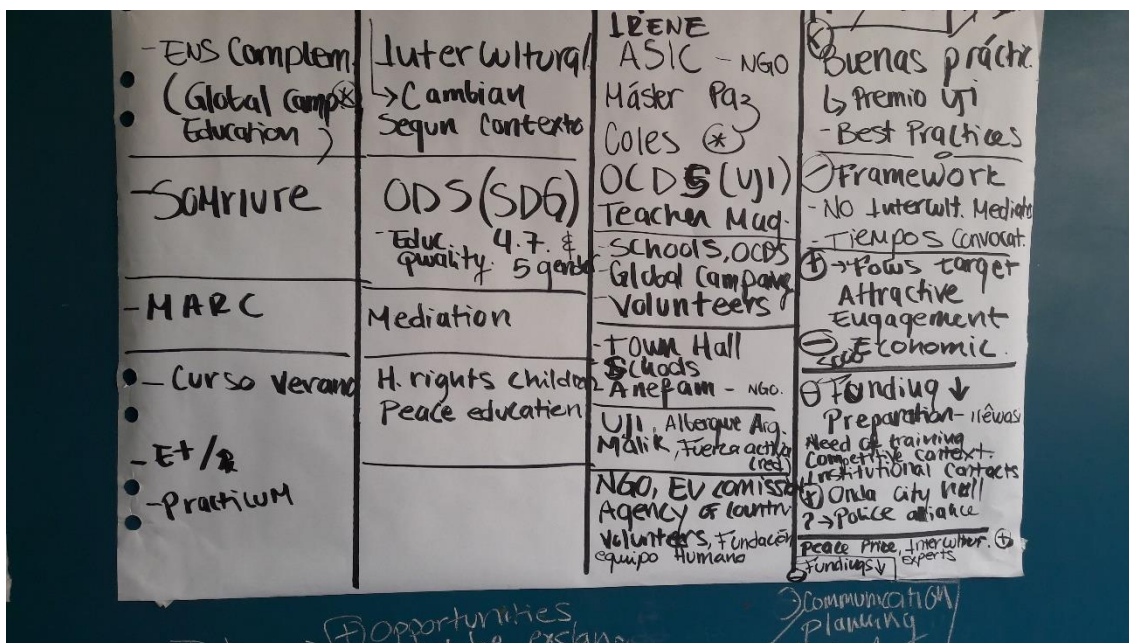 - ENS Complem.
(Global Camp*
Education)
- Somriure
- MARC
- Curso Verano
- E+/
- Practicum
Intercultural
↳ Cambian
Segun Contexto
ODS (SDG)
- Educ. 4.7. &
quality. 5 gender
Mediation
H. rights children
Peace education
IRENE
ASIC - NGO
Máster Paz
Coles *
OCDS (UJI)
Teacher Mag.
- Schools, OCDS
- Global Campang
- Volunteers
- Town Hall
- Schools
- Anefam - NGO.
UJI, Albergue Arg.
Malik, Fuerza activa
(red)
NGO, EV comission
Agency of countr
Volunteers, Fundación
equipo Humano
Buenas práctic.
↳ Premio UJI
- Best Practices
- Framework
- NO Intercult. Mediato
- Tiempos Convocat.
+ → Focus target
Attractive
Engagement
- Economic.
- Funding ↓
Preparation -
Need of training
Competitive context.
Institutional Contacts
+ Onda city hall
? → Police aliance
Peace Price, Intercultur. +
experts
- Fundings ↓
+ Opportunities
- Communication
planning